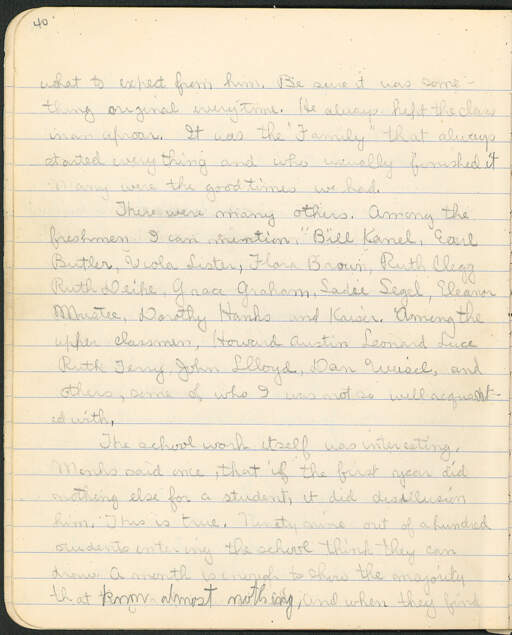 40
what to expect from him. Be sure it was some-
thing original everytime. He always kept the class
in an uproar. It was the "Family" that always
started everything and who usually finished it
Many were the good times we had.
There were many others. Among the
freshmen I can mention, "Bill Kanel, Earl
Butler, Viola Lister, Flora Brown, Ruth Clegg
Ruth Deike, Grace Graham, Sadie Segel, Eleanor
Mustee, Dorothy Hanks and Kaiser. Among the
upper classmen, Howard Austin Leonard Luce
Ruth Terry, John Lloyd, Dan and
others, some of who I was not so well acquaint-
ed with.
The school work itself was interesting.
said once, that if the first year did
nothing else for a student, it did disillusion
him. This is true. Ninety nine out of a hundred
students entering the school think they can
draw. A month is enough to show the majority
that know almost nothing, and when they find